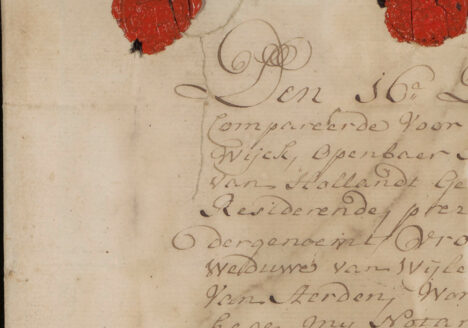 Den 16ᵃ
Compareerde Voor
Wijck, Openbaer
van Hollandt Ge
Residerende, prez
dergenoemt Vro
Weduwe van Wijle
Van Aerden, Won
my Notar